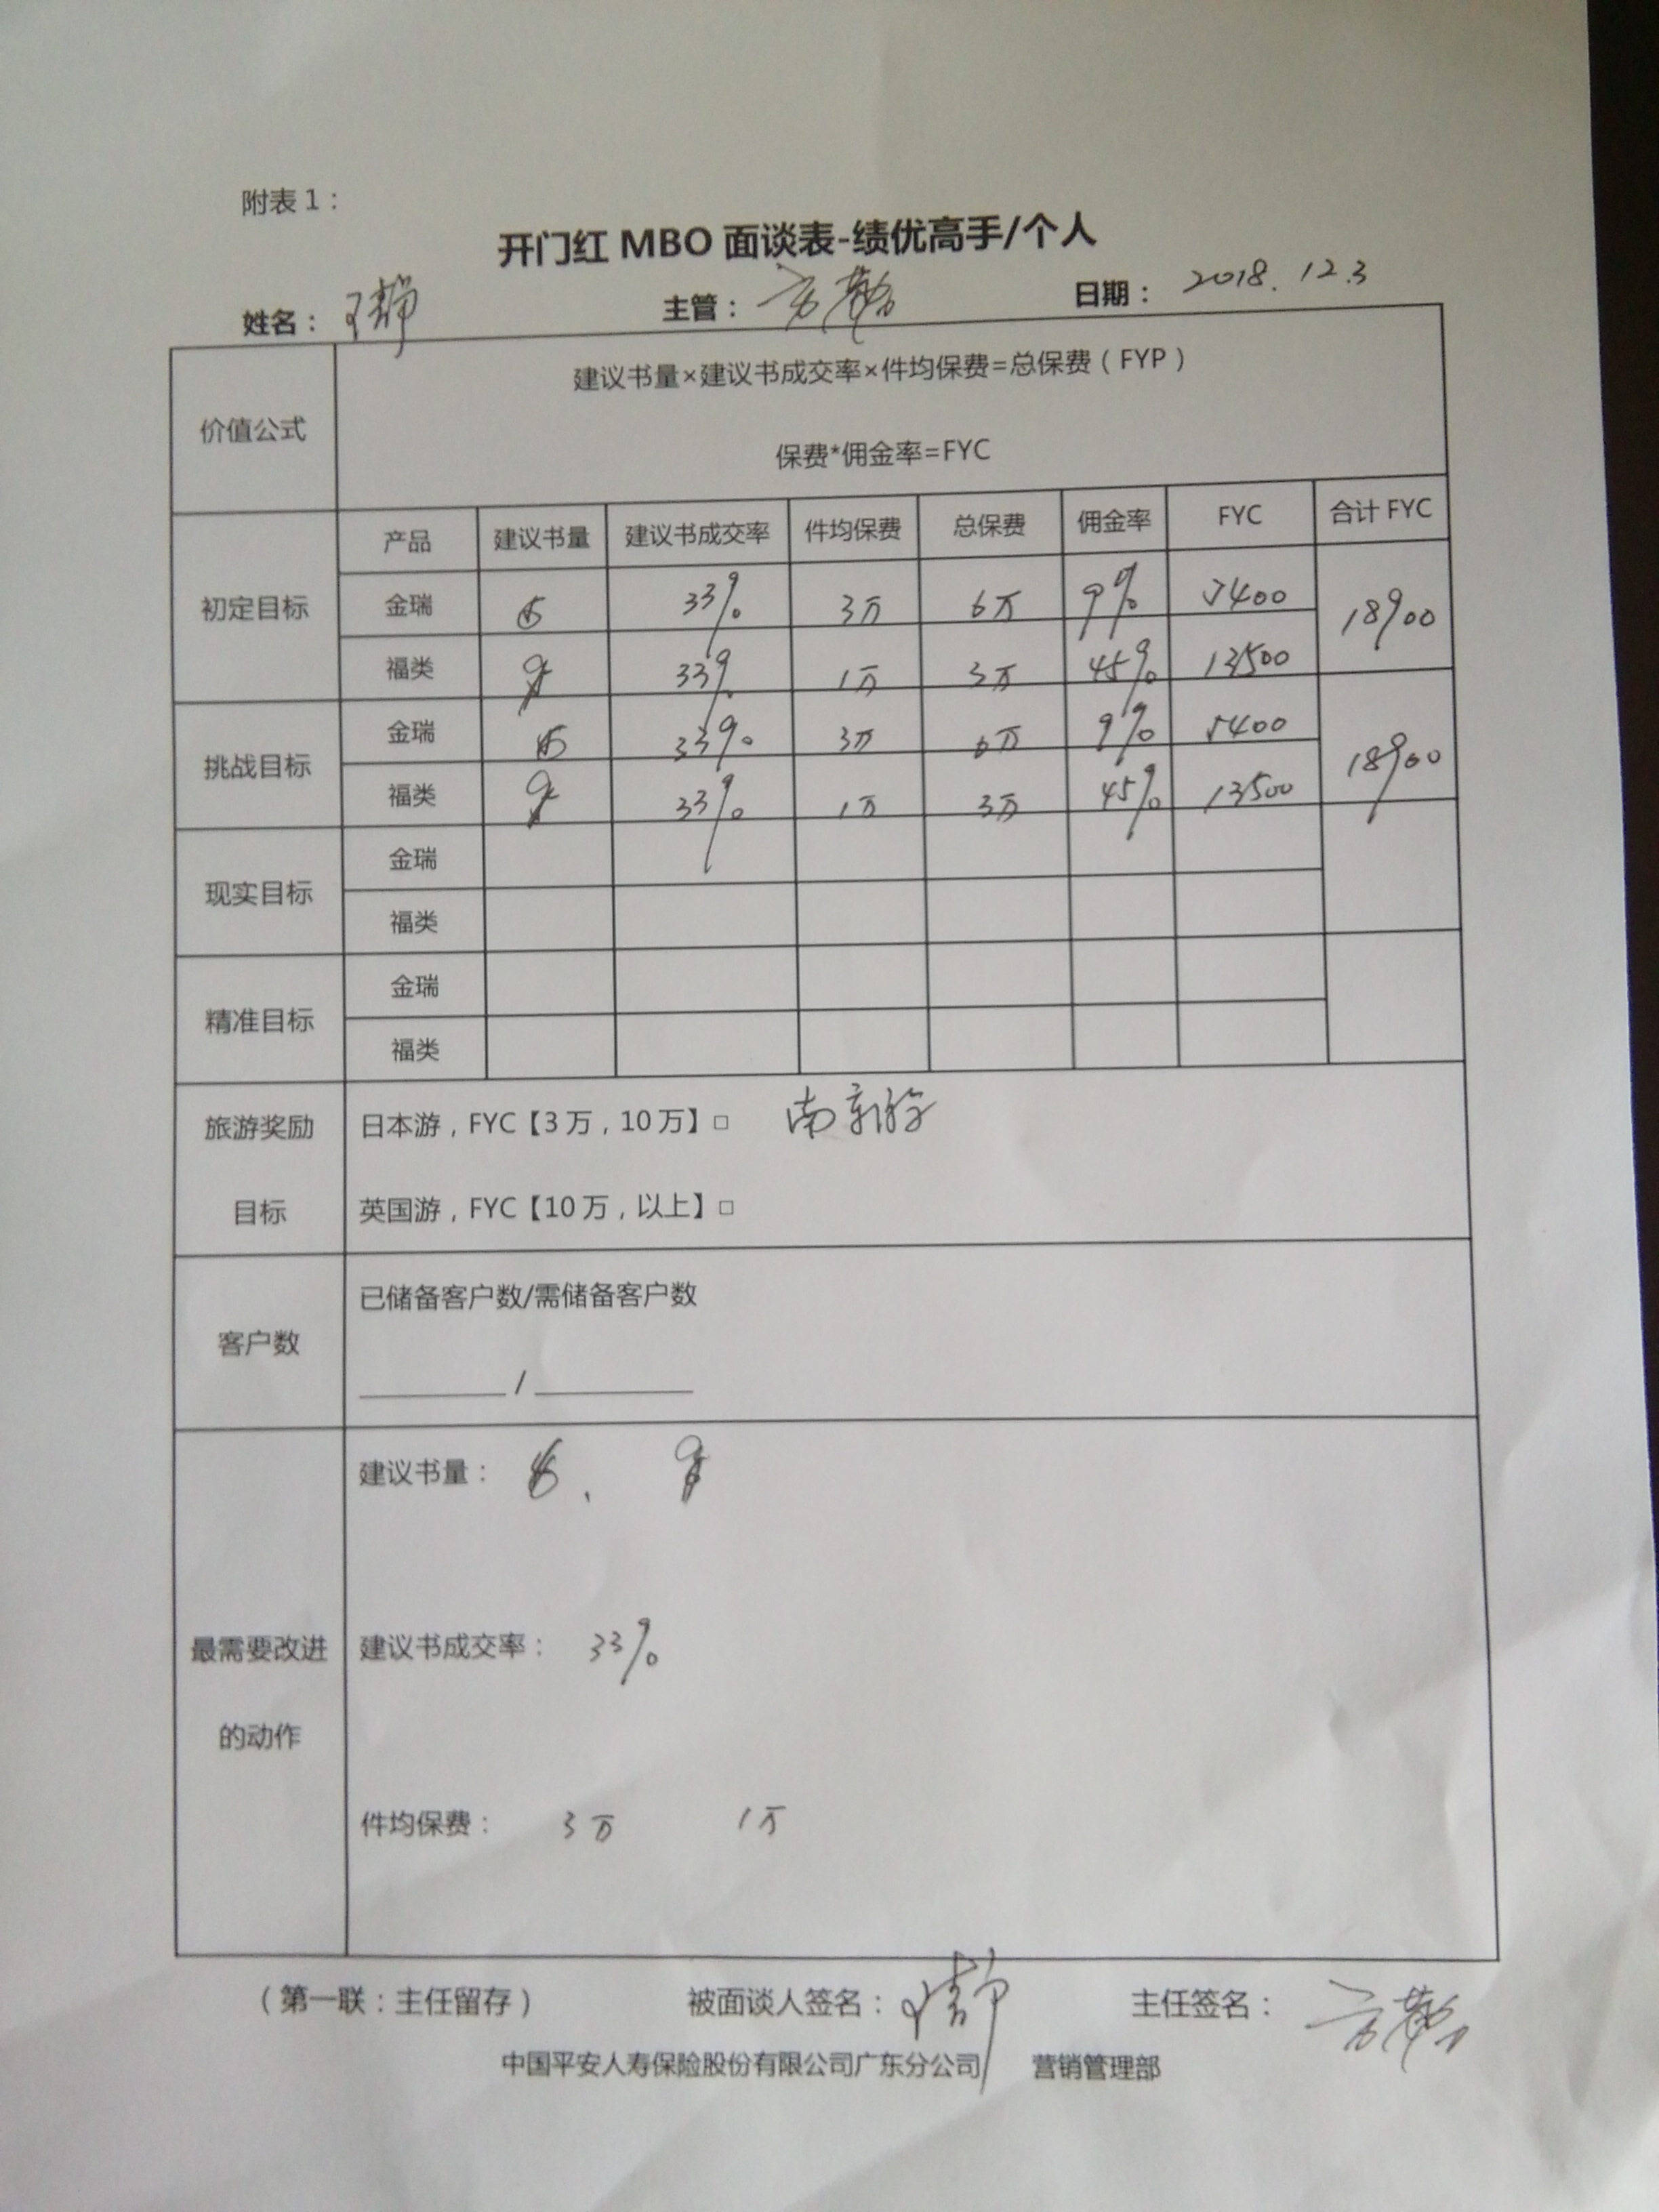 附表1：
开门红 MBO 面谈表-绩优高手/个人
姓名： 王静 主管： 日期： 2018.12.3
价值公式
建议书量×建议书成交率×件均保费=总保费（FYP）
保费*佣金率=FYC
产品 建议书量 建议书成交率 件均保费 总保费 佣金率 FYC 合计 FYC
初定目标
金瑞 6 33% 3万 6万 9% 5400 18900
福类 9 33% 1万 3万 45% 13500
挑战目标
金瑞 6 33% 3万 6万 9% 5400 18900
福类 9 33% 1万 3万 45% 13500
现实目标
金瑞
福类
精准目标
金瑞
福类
旅游奖励
目标
日本游，FYC【3万，10万】□
英国游，FYC【10万，以上】□
客户数
已储备客户数/需储备客户数
/
最需要改进
的动作
建议书量： 6、 9
建议书成交率： 33%
件均保费： 3万 1万
（第一联：主任留存） 被面谈人签名： 王静 主任签名：
中国平安人寿保险股份有限公司广东分公司 营销管理部